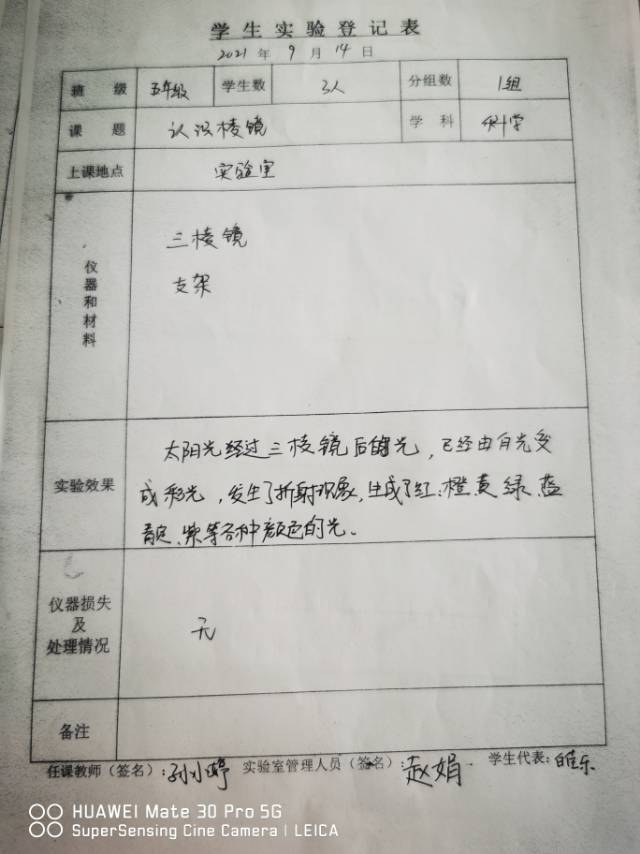 学生实验登记表
2021年9月14日
班 级 五年级 学生数 3人 分组数 1组
课 题 认识棱镜 学 科 科学
上课地点 实验室
仪器和材料
三棱镜
支架
实验效果
太阳光经过三棱镜后的光,已经由白光变
成彩光,发生了折射现象,生成了红、橙、黄、绿、蓝
靛、紫等各种颜色的光。
仪器损失
及
处理情况
无
备注
任课教师(签名): 实验室管理人员(签名):赵娟 学生代表:
HUAWEI Mate 30 Pro 5G
SuperSensing Cine Camera | LEICA